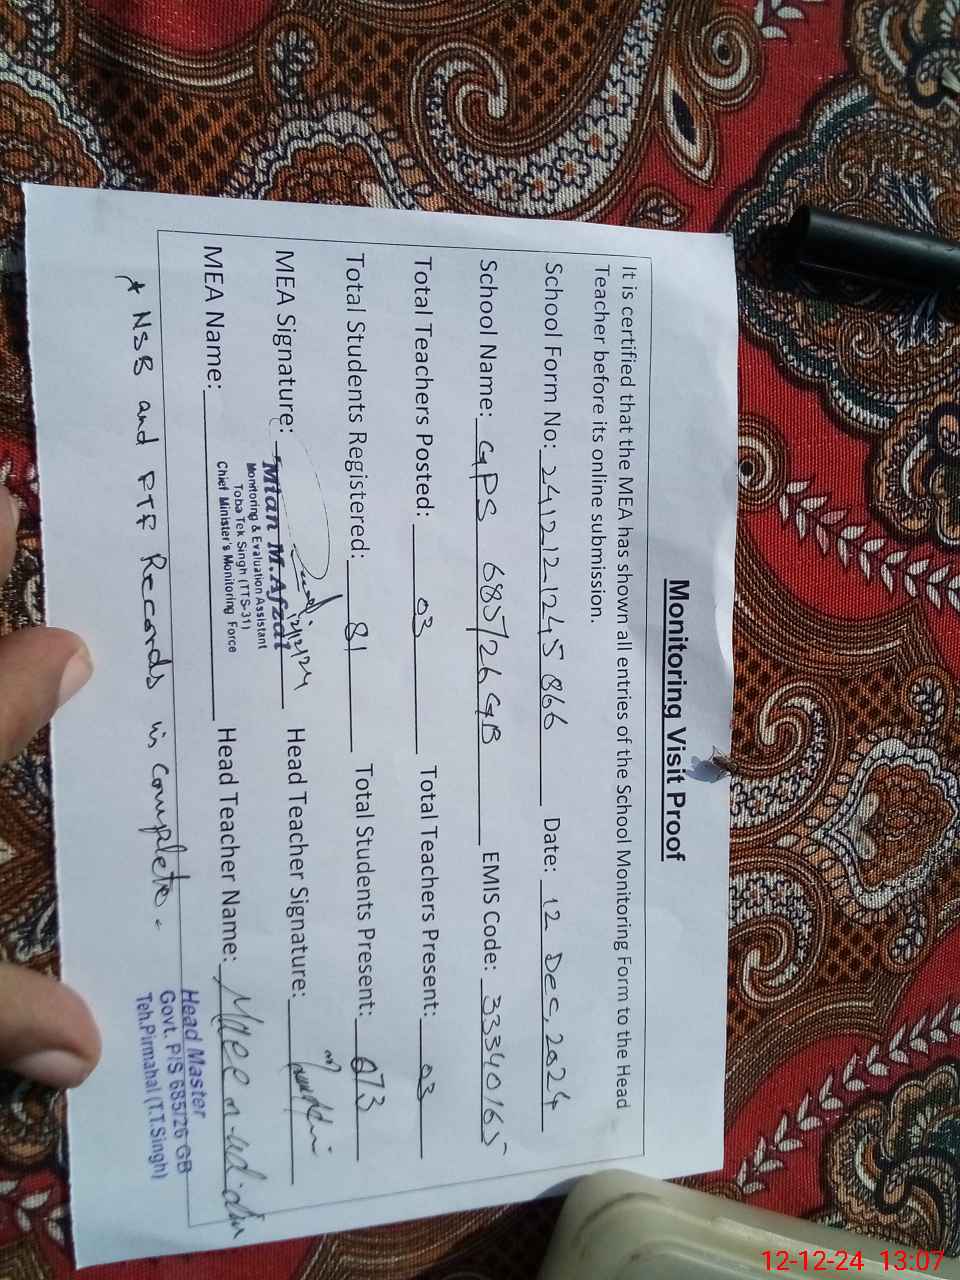 Monitoring Visit Proof
It is certified that the MEA has shown all entries of the School Monitoring Form to the Head
Teacher before its online submission.
School Form No: 2412121245866 Date: 12 Dec, 2024
School Name: GPS 685/26 GB EMIS Code: 33340165
Total Teachers Posted: 03 Total Teachers Present: 03
Total Students Registered: 81 Total Students Present: 073
MEA Signature: 12/12/24 Head Teacher Signature:
Mian M.Afzal
Monitoring & Evaluation Assistant
Toba Tek Singh (TTS-31)
Chief Minister's Monitoring Force
MEA Name: Head Teacher Name:
* NSB and FTF Records is complete.
Head Master
Govt. P/S 685/26 GB
Teh.Pirmahal (T.T.Singh)
12-12-24 13:07